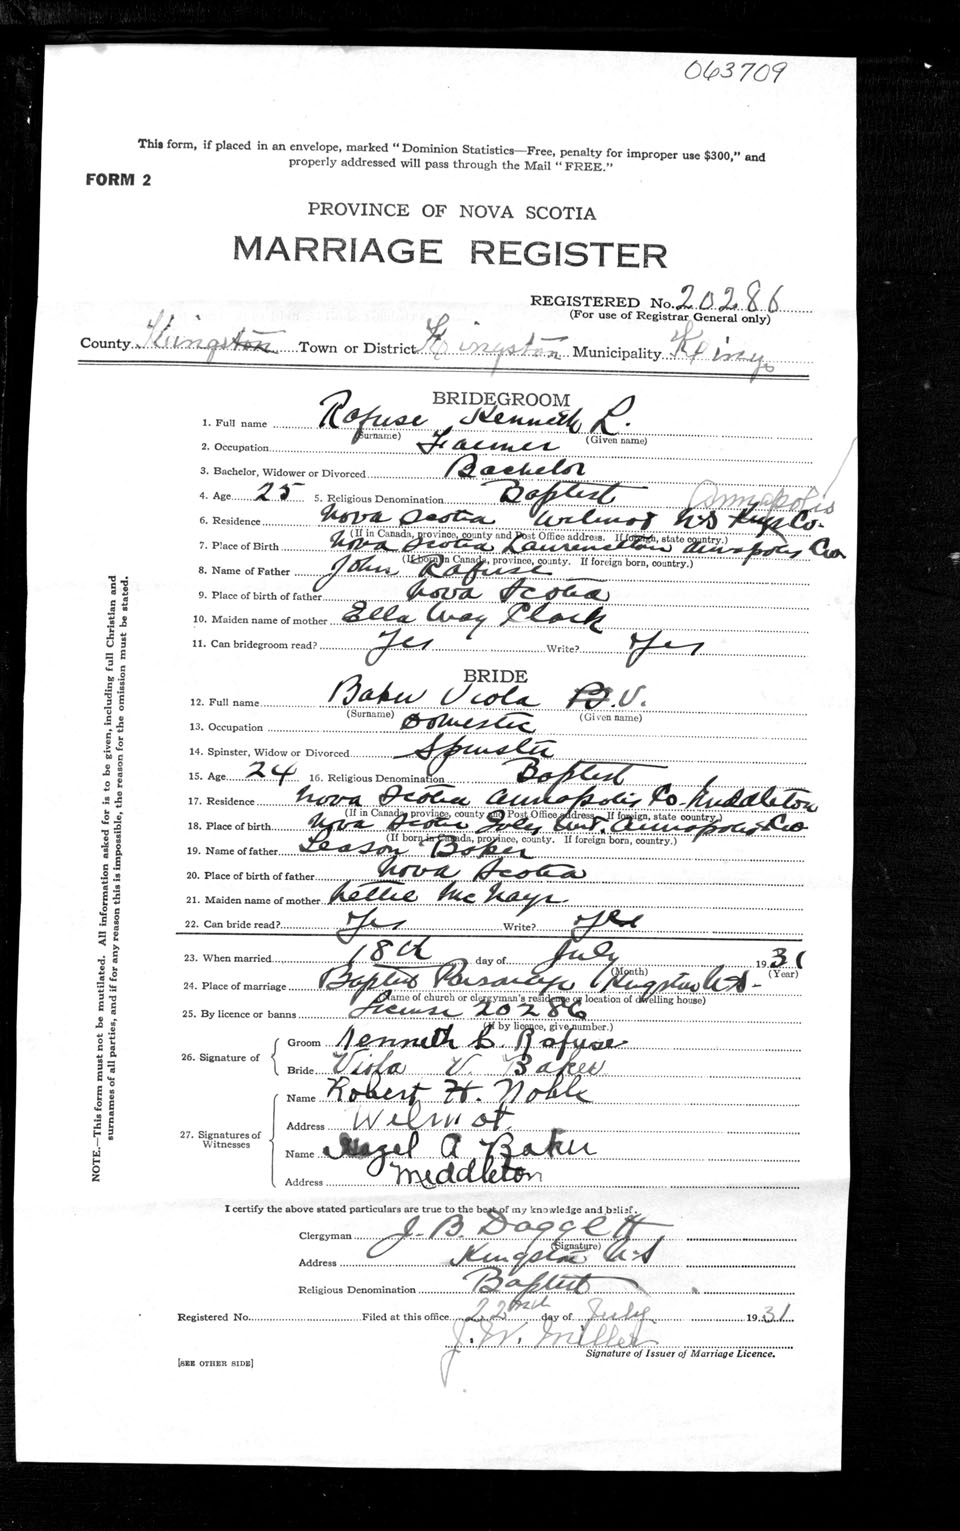 063709
This form, if placed in an envelope, marked "Dominion Statistics—Free, penalty for improper use $300," and
properly addressed will pass through the Mail "FREE."
FORM 2
PROVINCE OF NOVA SCOTIA
MARRIAGE REGISTER
REGISTERED No. 20286
(For use of Registrar General only)
County Kingston Town or District Kingston Municipality Kings
BRIDEGROOM
1. Full name Rafuse Kenneth L.
(Surname) (Given name)
2. Occupation Farmer
3. Bachelor, Widower or Divorced Bachelor
4. Age 25 5. Religious Denomination Baptist Annapolis
6. Residence Nova Scotia Wilmot N-S Kings Co.
(If in Canada, province, county and Post Office address. If foreign, state country.)
7. Place of Birth Nova Scotia Annapolis Co
(If born in Canada, province, county. If foreign born, country.)
8. Name of Father John Rafuse
9. Place of birth of father Nova Scotia
10. Maiden name of mother Ella May
11. Can bridegroom read? Yes Write? Yes
BRIDE
12. Full name Baker Viola B. V.
(Surname) (Given name)
13. Occupation Domestic
14. Spinster, Widow or Divorced Spinster
15. Age 24 16. Religious Denomination Baptist
17. Residence Nova Scotia Annapolis Co. Middleton
(If in Canada, province, county and Post Office address. If foreign, state country.)
18. Place of birth Nova Scotia Annapolis Co
(If born in Canada, province, county. If foreign born, country.)
19. Name of father Leason Baker
20. Place of birth of father Nova Scotia
21. Maiden name of mother Lettie McNayr
22. Can bride read? Yes Write? Yes
23. When married 18th day of July 1931
(Month) (Year)
24. Place of marriage Baptist Parsonage Kingston N.S.
(Name of church or clergyman's residence or location of dwelling house)
25. By licence or banns License 20286
(If by licence, give number.)
26. Signature of
Groom Kenneth L. Rafuse
Bride Viola V. Baker
27. Signatures of Witnesses
Name Robert H. Noble
Address Wilmot
Name Hazel A Baker
Address Middleton
I certify the above stated particulars are true to the best of my knowledge and belief.
Clergyman J. B. Daggett
(Signature)
Address Kingston N-S
Religious Denomination Baptist
Registered No. Filed at this office 22nd day of July 1931
J. W. Miller
Signature of Issuer of Marriage Licence.
[SEE OTHER SIDE]
NOTE.—This form must not be mutilated. All information asked for is to be given, including full Christian and
surnames of all parties, and if for any reason this is impossible, the reason for the omission must be stated.